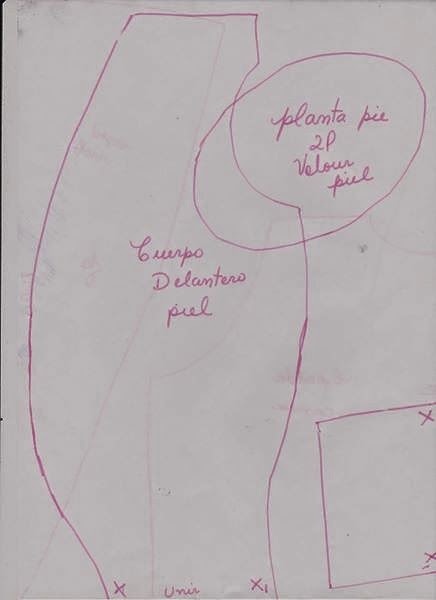 planta pie
2P
Velour
piel
Cuerpo
Delantero
piel
X
X
X Unir X1